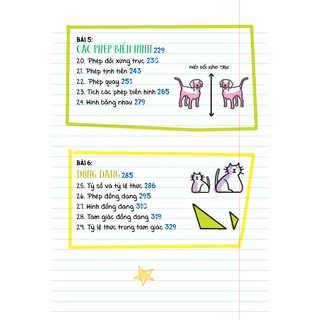 BÀI 5:
CÁC PHÉP BIẾN HÌNH 229
20. Phép đối xứng trục 230
21. Phép tịnh tiến 243
22. Phép quay 251
23. Tích các phép biến hình 265
24. Hình bằng nhau 279
PHÉP ĐỐI XỨNG TRỤC
BÀI 6:
ĐỒNG DẠNG 285
25. Tỷ số và tỷ lệ thức 286
26. Phép đồng dạng 295
27. Hình đồng dạng 310
28. Tam giác đồng dạng 319
29. Tỷ lệ thức trong tam giác 329